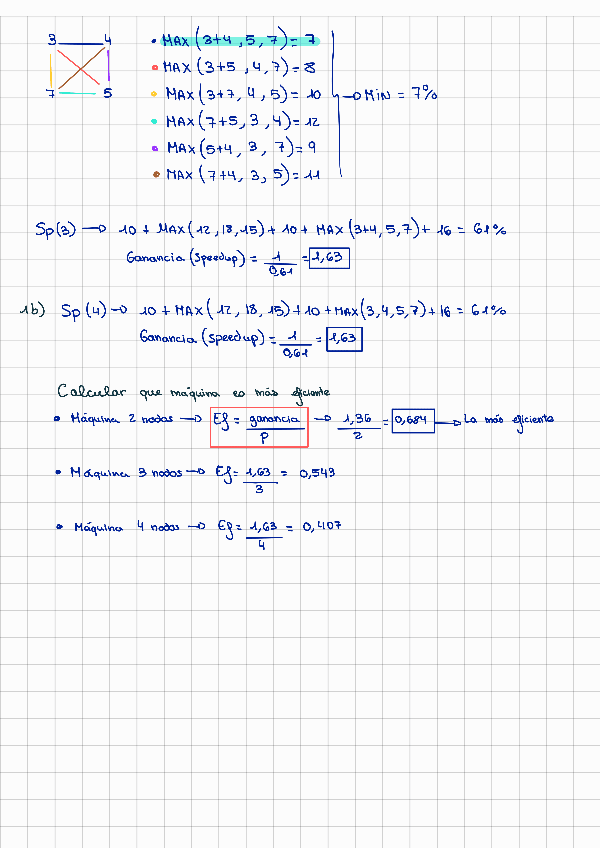 3 4
7 5
• MAX (3+4, 5, 7) = 7
• MAX (3+5, 4, 7) = 8
• MAX (3+7, 4, 5) = 10
• MAX (7+5, 3, 4) = 12
• MAX (5+4, 3, 7) = 9
• MAX (7+4, 3, 5) = 11
→ MIN = 7%
Sp(3) → 10 + MAX(12, 18, 15) + 10 + MAX(3+4, 5, 7) + 16 = 61%
Ganancia (speedup) = 1/0,61 = 1,63
1b) Sp(4) → 10 + MAX(12, 18, 15) + 10 + MAX(3, 4, 5, 7) + 16 = 61%
Ganancia (speedup) = 1/0,61 = 1,63
Calcular que máquina es más eficiente
• Máquina 2 nodos → Ef = ganancia/P → 1,36/2 = 0,684 → La más eficiente
• Máquina 3 nodos → Ef = 1,63/3 = 0,543
• Máquina 4 nodos → Ef = 1,63/4 = 0,407